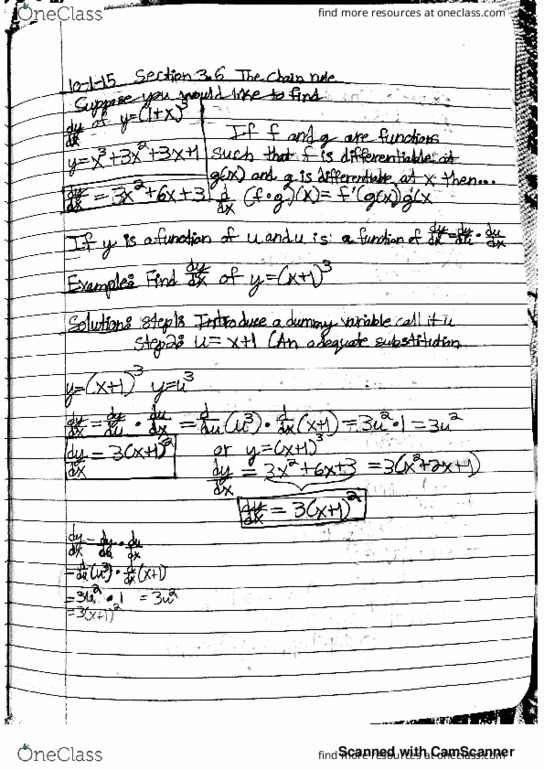 OneClass
find more resources at oneclass.com
10-1-15 Section 3.6 The Chain rule
Suppose you would like to find
dy/dx of y=(1+x)^3
y=x^3+3x^2+3x+1
dy/dx = 3x^2+6x+3
If f and g are functions
such that f is differentiable at
g(x) and g is differentiable at x then...
d/dx (f·g)(x)= f'(g(x)g'(x
If y is a function of u and u is a function of dy/dx = dy/du · du/dx
Example: Find dy/dx of y=(x+1)^3
Solution: Step 1: Introduce a dummy variable call it u
Step 2: u = x+1 (An adequate substitution
y=(x+1)^3 y=u^3
dy/dx = dy/du · du/dx = d/du (u^3) · d/dx (x+1) = 3u^2·1 = 3u^2
dy/dx = 3(x+1)^2
or y=(x+1)^3
dy/dx = 3x^2+6x+3 = 3(x^2+2x+1)
dy/dx = 3(x+1)^2
dy/dx = dy/du · du/dx
= d/du (u^3) · d/dx (x+1)
= 3u^2 · 1 = 3u^2
= 3(x+1)^2
OneClass
find more resources at oneclass.com
Scanned with CamScanner